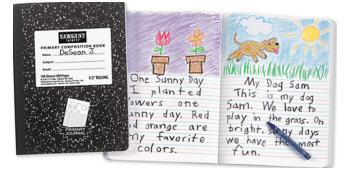 SARGENT
PRIMARY COMPOSITION BOOK
Name DeSean J.
School
Grade
100 Sheets/200 Pages
1/2" RULING
PRIMARY
JOURNAL
One Sunny Day
I planted
flowers one
sunny day. Red
and orange are
my favorite
colors.
My Dog Sam
This is my dog
Sam. We love to
play in the grass. On
bright, sunny days
we have the most
fun.